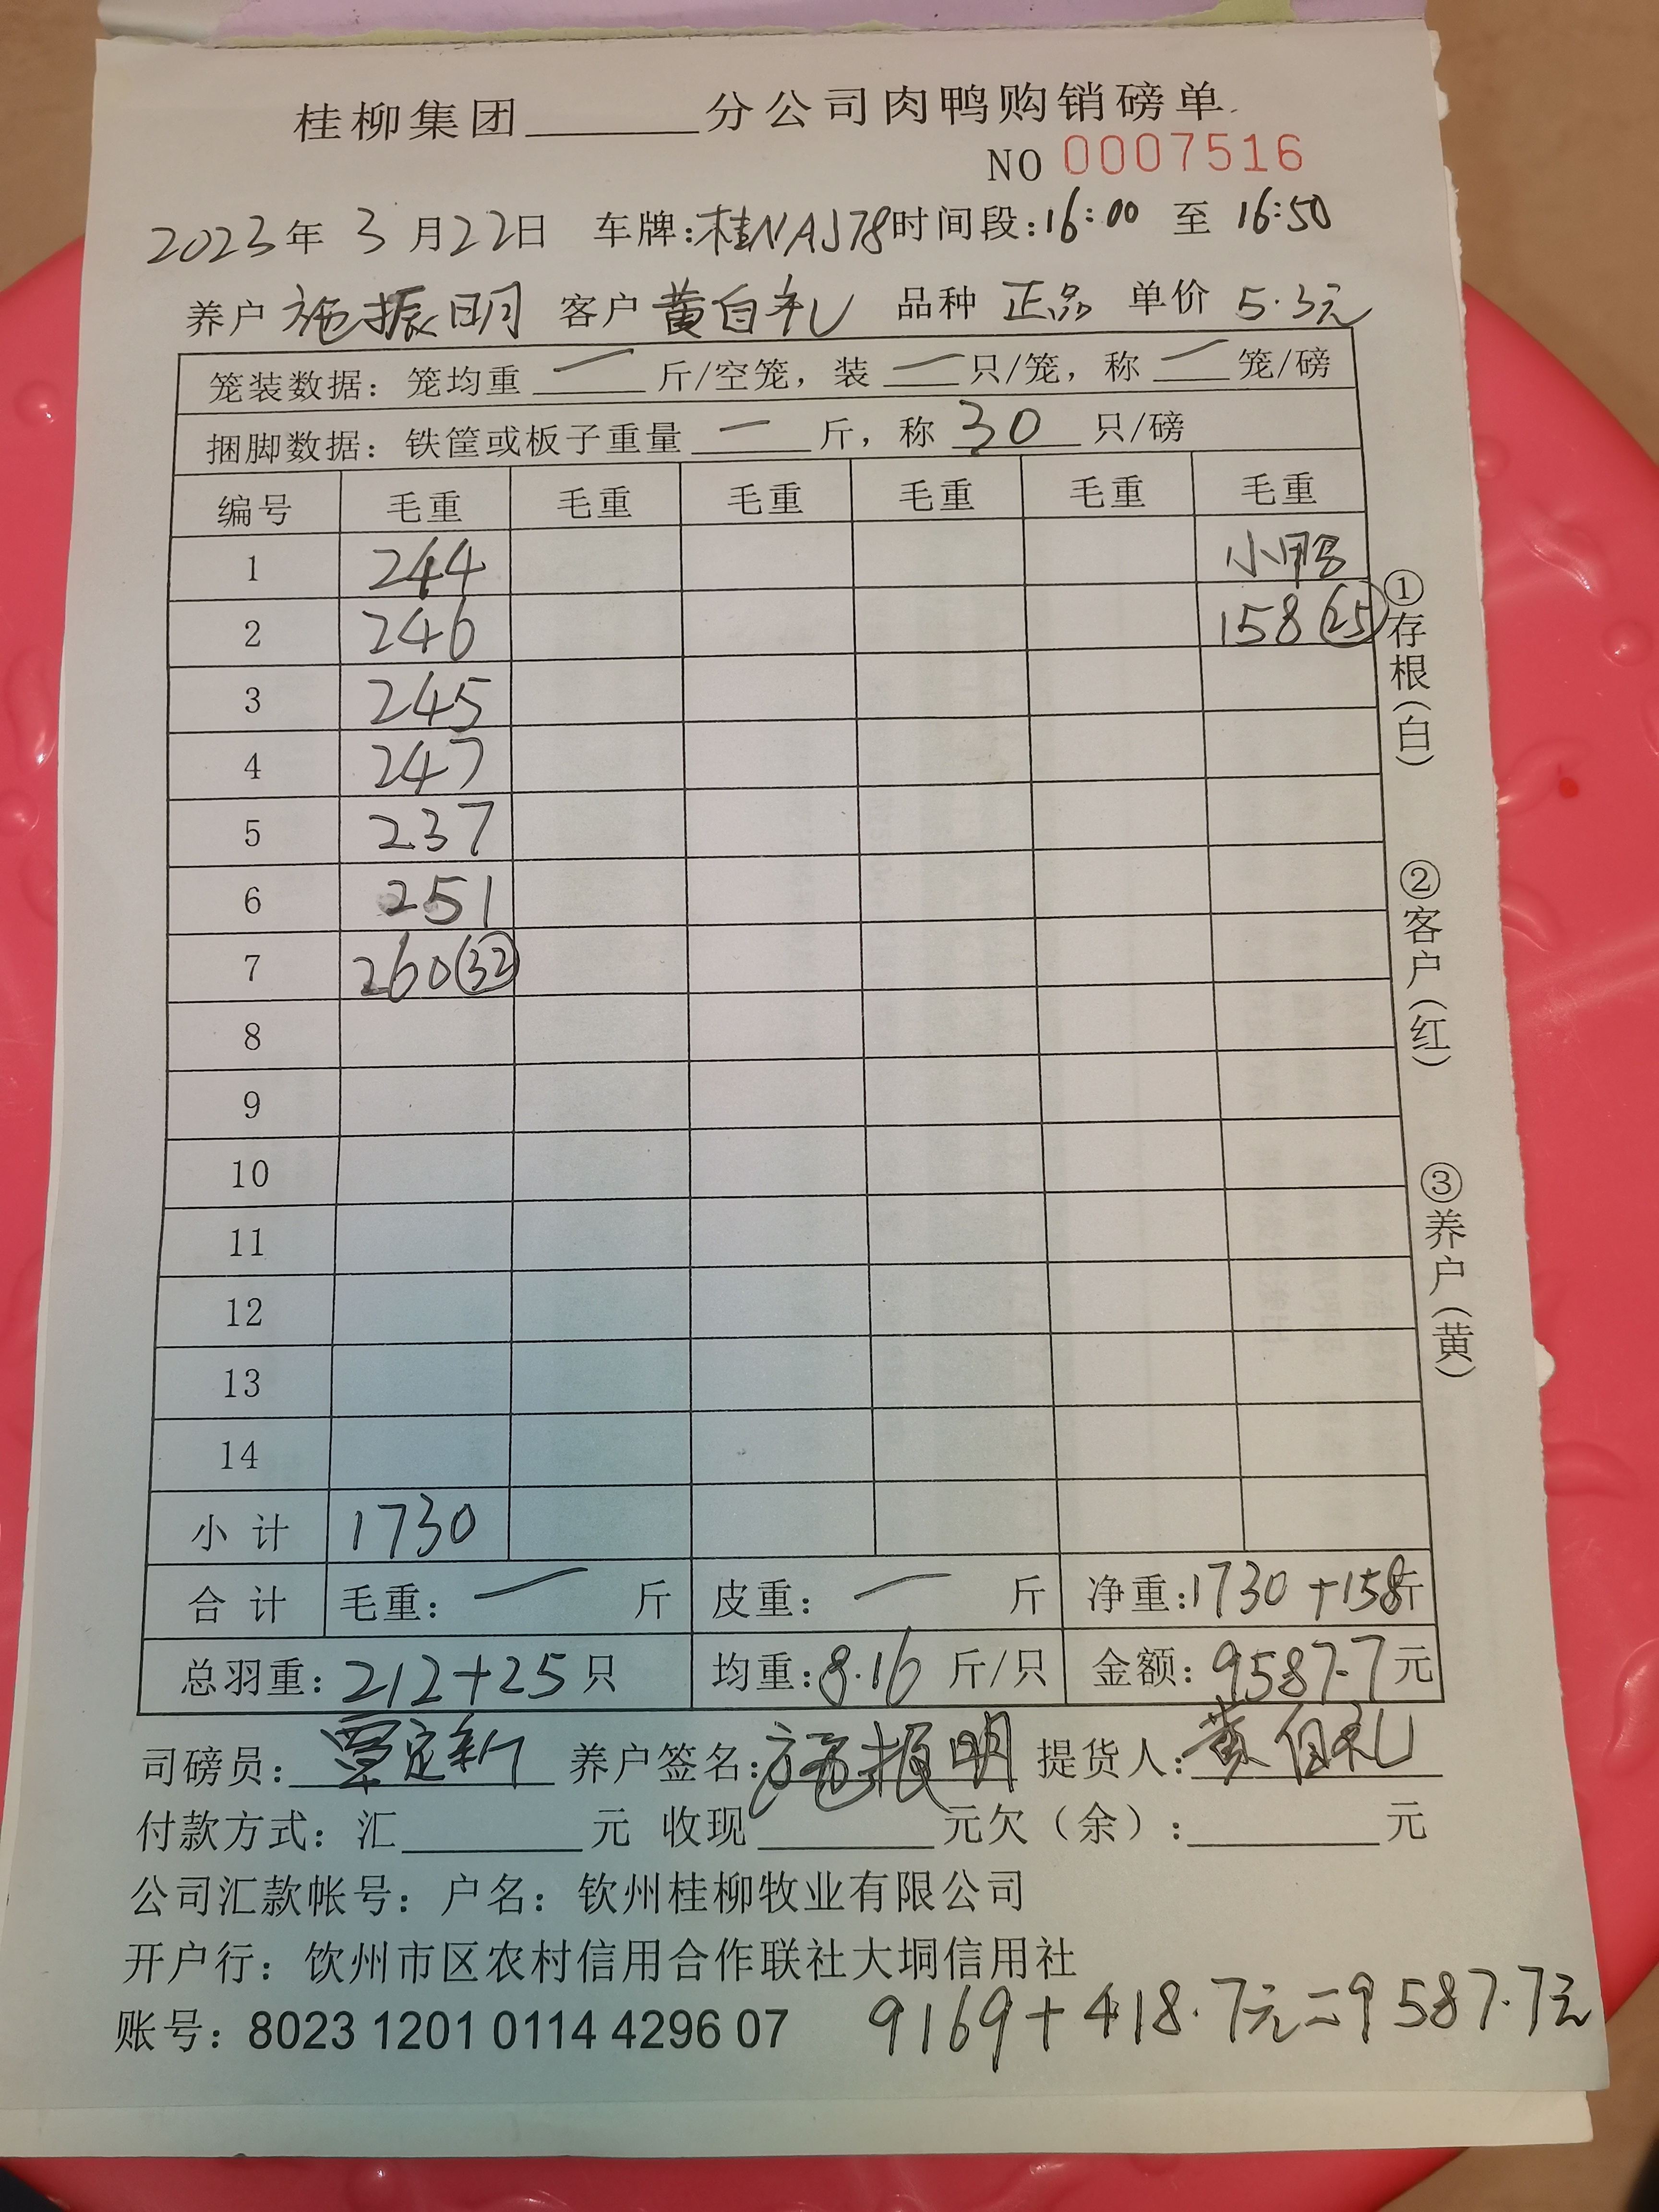 桂柳集团______分公司肉鸭购销磅单
NO 0007516
2023年 3 月22日 车牌:桂NAJ78时间段:16:00 至 16:50
养户 施振明 客户 黄自礼 品种 正品 单价 5.3元
笼装数据：笼均重 — 斤/空笼，装 — 只/笼，称 — 笼/磅
捆脚数据：铁筐或板子重量 — 斤，称 30 只/磅
编号 毛重 毛重 毛重 毛重 毛重 毛重
1 244 小鸭
2 246 158 (25)
3 245
4 247
5 237
6 251
7 260 (32)
8
9
10
11
12
13
14
小计 1730
合计 毛重： — 斤 皮重： — 斤 净重:1730+158斤
总羽重：212+25只 均重:8.16 斤/只 金额：9587.7元
司磅员：覃定新 养户签名:施振明 提货人:黄自礼
付款方式：汇______元 收现______元欠（余）:______元
公司汇款帐号：户名：钦州桂柳牧业有限公司
开户行：钦州市区农村信用合作联社大垌信用社
账号：8023 1201 0114 4296 07 9169+418.7元=9587.7元
①存根（白）
②客户（红）
③养户（黄）